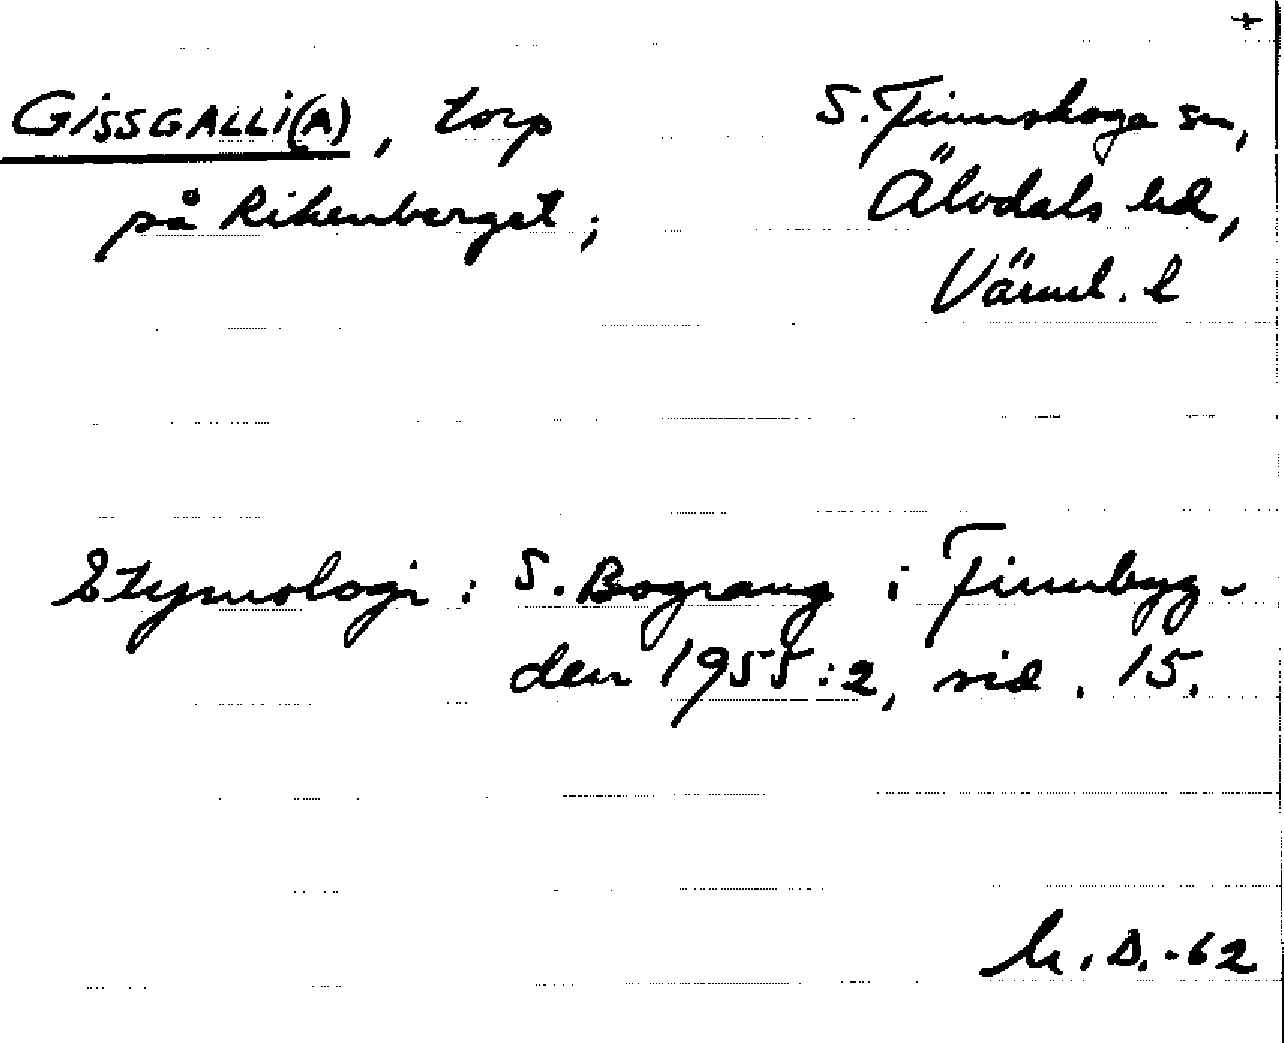 +
GISSGALLI(A), torp S. Finnskoga sn,
på Rikenberget; Älvdals hd,
Värml. l
Etymologi: S. Bograng i Finnbyg-
den 1955:2, sid. 15.
D.-62